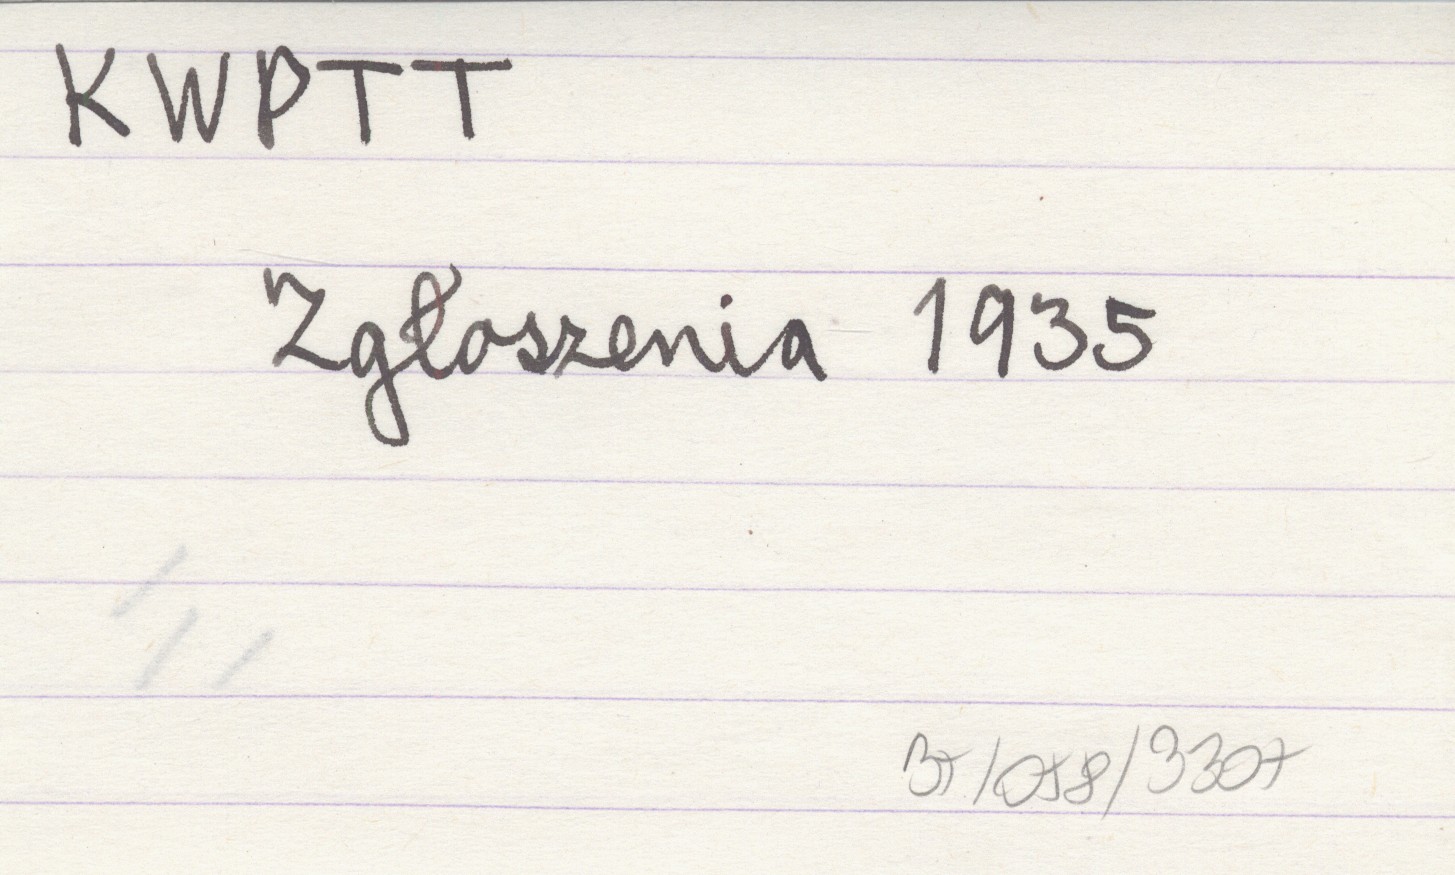 KWPTT
Zgłoszenia 1935
37/058/3307